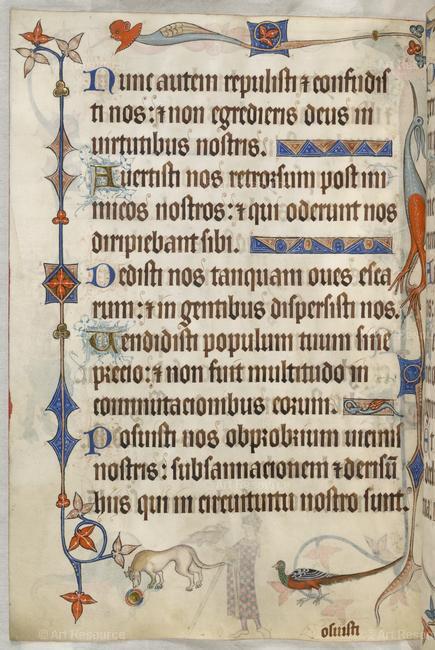 Nunc autem repulisti ⁊ confudis
ti nos: ⁊ non egredieris deus in
uirtutibus nostris.
Auertisti nos retrorsum post ini
micos nostros: ⁊ qui oderunt nos
diripiebant sibi.
Dedisti nos tanquam oues esca
rum: ⁊ in gentibus dispersisti nos.
Uendidisti populum tuum sine
precio: ⁊ non fuit multitudo in
commutacionibus eorum.
Posuisti nos obprobrium uicinis
nostris: subsannacionem ⁊ derisū
hiis qui in circuitu nostro sunt.
osuisti
© Art Resource
© Art Resource